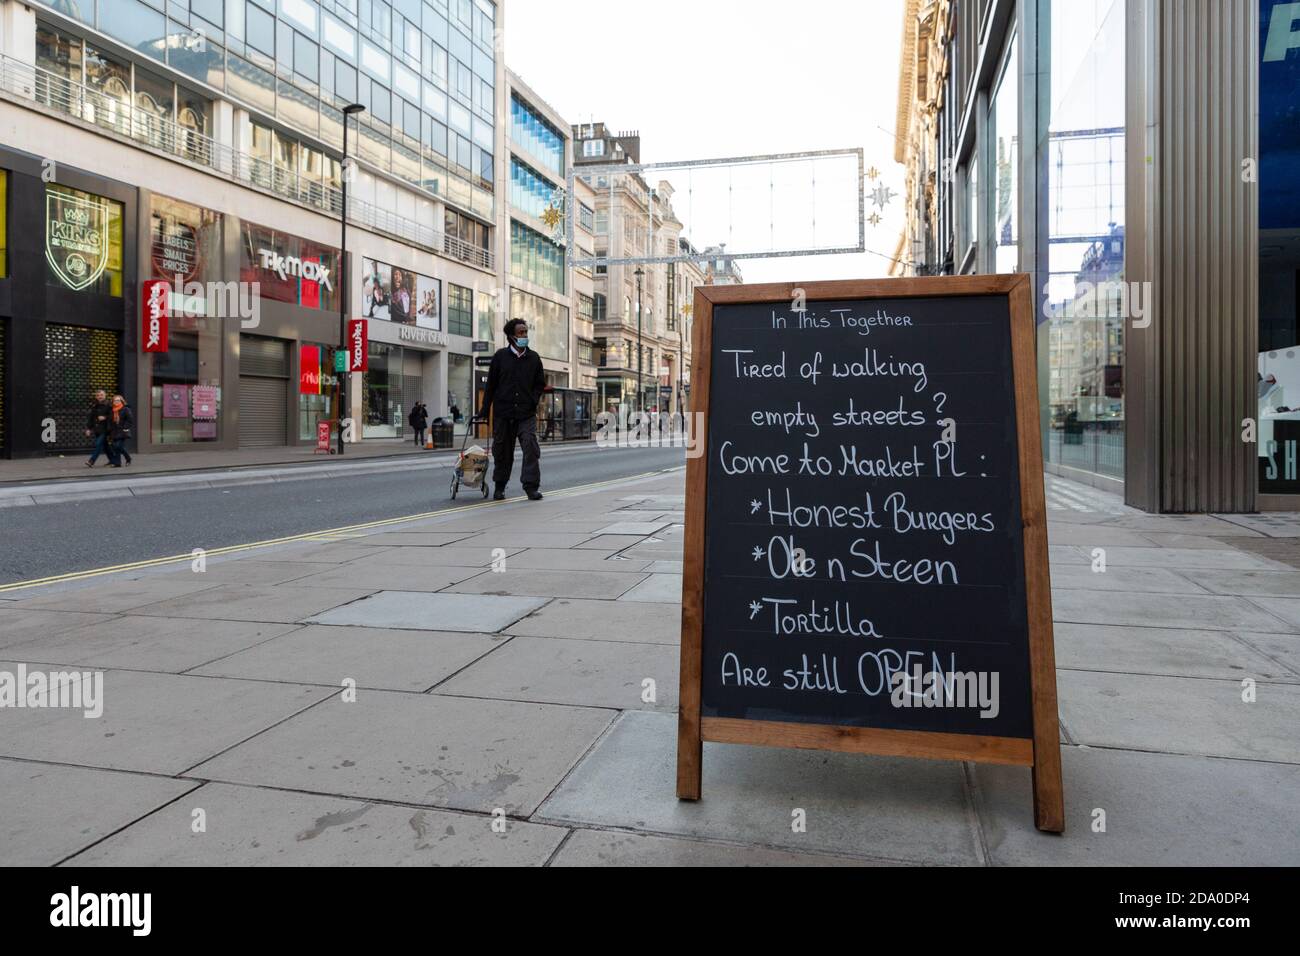 In This Together
Tired of walking
empty streets?
Come to Market Pl :
*Honest Burgers
*Ole n Steen
*Tortilla
Are still OPEN
KING
TK maxx
LABELS
SMALL
PRICES
TK maxx
TK maxx
RIVER ISLAND
SH
P
a
alamy
Image ID: 2DA0DP4
www.alamy.com